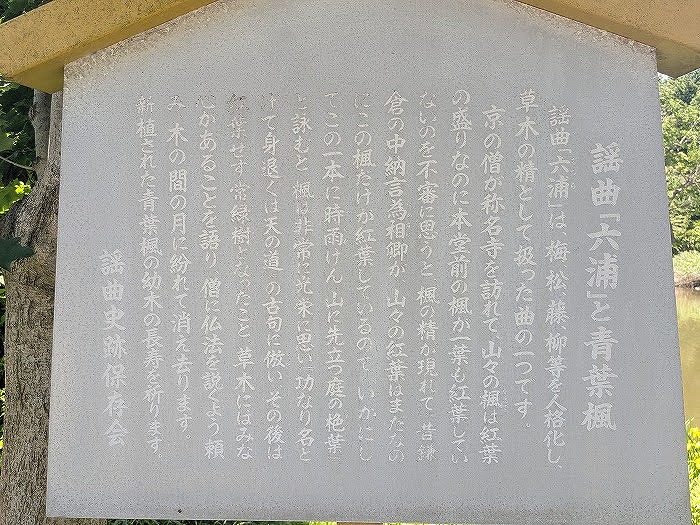 謡曲「六浦」と青葉楓
謡曲「六浦」は、梅、松、藤、柳等を人格化し、
草木の精として扱った曲の一つです。
京の僧が称名寺を訪れて、山々の楓は紅葉
の盛りなのに本堂前の楓が一葉も紅葉してい
ないのを不審に思うと、楓の精が現れて、昔鎌
倉の中納言為相卿が、山々の紅葉はまだなの
にこの楓だけが紅葉しているので、"いかにし
てこの一本に時雨けん 山に先立つ庭の楓葉"
と詠むと、楓は非常に光栄に思い"功なり名と
げて身退くは天の道"の古句に倣い、その後は
紅葉せず常緑樹となったこと、草木にはみな
心があることを語り、僧に仏法を説くよう頼
み、木の間の月に紛れて消え去ります。
新植された青葉楓の幼木の長寿を祈ります。
謡曲史跡保存会